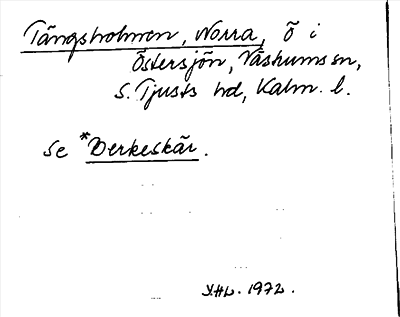 Tångsholmen, Norra, ö i
Östersjön, Västrums sn,
S. Tjusts hd, Kalm. l.
Se *Berkeskär.
1972.